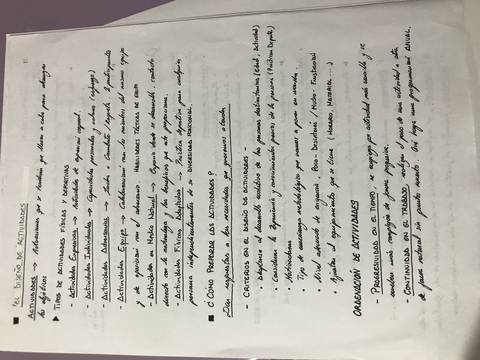 "EL DISEÑO DE ACTIVIDADES"
ACTIVIDADES → Actuaciones que se tendrán que llevar a cabo para alcanzar
los objetivos
▶ TIPOS DE ACTIVIDADES FÍSICAS Y DEPORTIVAS
- Actividades Expresivas → Actividades de expresión corporal.
- Actividades Individuales → Capacidades personales y
- Actividades Adversario →
- Actividades Equipo → Colaboración con los miembros del mismo equipo
y de oposición con el adversario. HABILIDADES TÉCNICAS DE EQUIPO
- Actividades en Medio Natural → Espacio donde se desarrolla, contacto
directo con la naturaleza y los beneficios que nos proporciona.
- Actividades Físicas Adaptadas → Práctica deportiva para cualquier
persona independientemente de su diversidad funcional.
■ ¿CÓMO PREPARAR LAS ACTIVIDADES?
Dar respuestas a las necesidades que queremos atender
- CRITERIOS EN EL DISEÑO DE ACTIVIDADES -
• Adaptarse al desarrollo evolutivo de las personas destinatarias (Edad, Actividad)
• Considerar la experiencia y conocimientos previos de la persona
• Motivadoras
• Tipo de metodológica que vamos a poner en marcha.
• Nivel adecuado de exigencia. Poca - Desinterés / Mucha - Frustración
• Ajustar el equipamiento que se tiene (HORARIO, MATERIAL ...)
ORDENACIÓN DE ACTIVIDADES
- PROGRESIVIDAD EN EL TIEMPO, se empieza por actividad más sencilla y se
aumenta complejidad de forma progresiva.
- CONTINUIDAD EN EL TRABAJO, el paso de una actividad a otra
de forma natural sin perder Que haya una programación ANUAL.